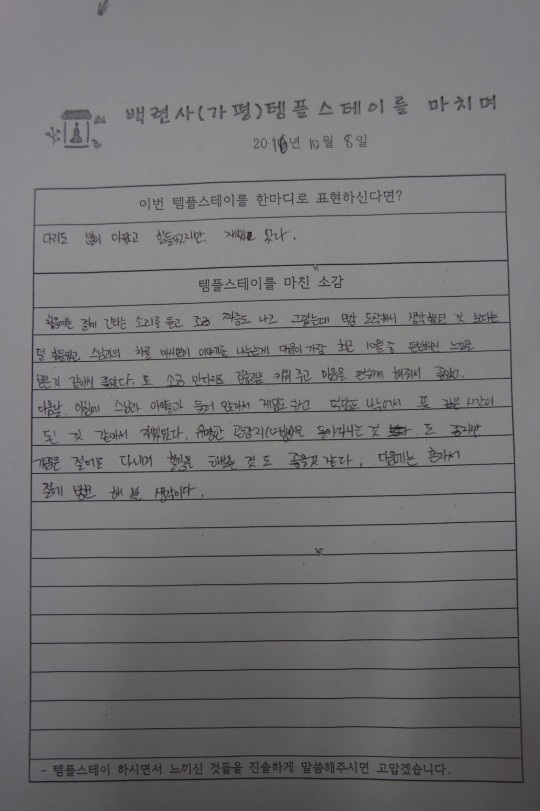 백련사(가평)템플스테이를 마치며
2016년 10월 8일
이번 템플스테이를 한마디로 표현하신다면?
다리도 많이 아팠고 힘들었지만. 재밌 었다.
템플스테이를 마친 소감
처음에는 절에 간다는 소리를 듣고 조금 짜증도 나고 그랬는데 막상 도착하니 생각했던 것 보다는
덜 힘들었고 스님과의 차를 마시면서 이야기를 나누는게 마음이 가장 최근 10월 중 편안한 느낌을
받은것 같아서 좋았다. 또 소금 만다라도 집중력을 키워 주고 마음을 편하게 해줘서 좋았고.
다음날. 아침에 스님과 아이들과 둘러 앉아서 게임도 하고 덕담도 나누어서 뜻 깊은 시간이
된 것 같아서 재밌었다. 유명한 관광지 을 돌아다니는 것 도 좋지만
가끔은 절에도 다니며 힐링을 해보는 것도 좋을것 같다. 다음에는 혼자서
절에 방문 해 볼 생각이다.
- 템플스테이 하시면서 느끼신 것들을 진솔하게 말씀해주시면 고맙겠습니다.